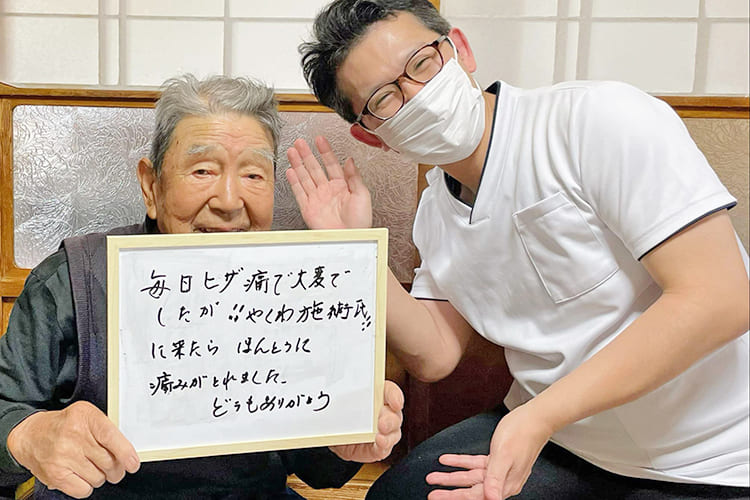 毎日ヒザ痛で大変で
したが!!やくわ施術氏!!
に来たら ほんとうに
痛みがとれました。
どうもありがとう